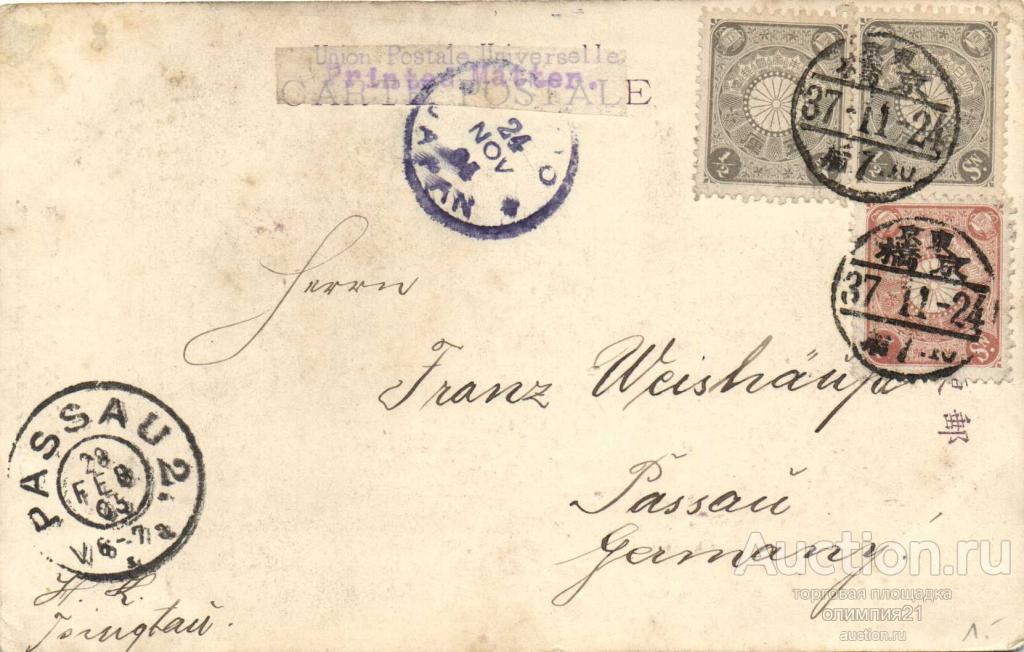 Union Postale Universelle
Printed Matter.
CARTE POSTALE
JAPAN
24
NOV
04
1/2
東京
橋
37-11-24
東京
橋
37-11-24
郵
Herrn
Franz Weishäupl
Passau
Germany.
PASSAU 2.
28
FEB
05
V 6-7
H. K.
Tsingtau.
Auction.ru
торговая площадка
олимпия21
auction.ru